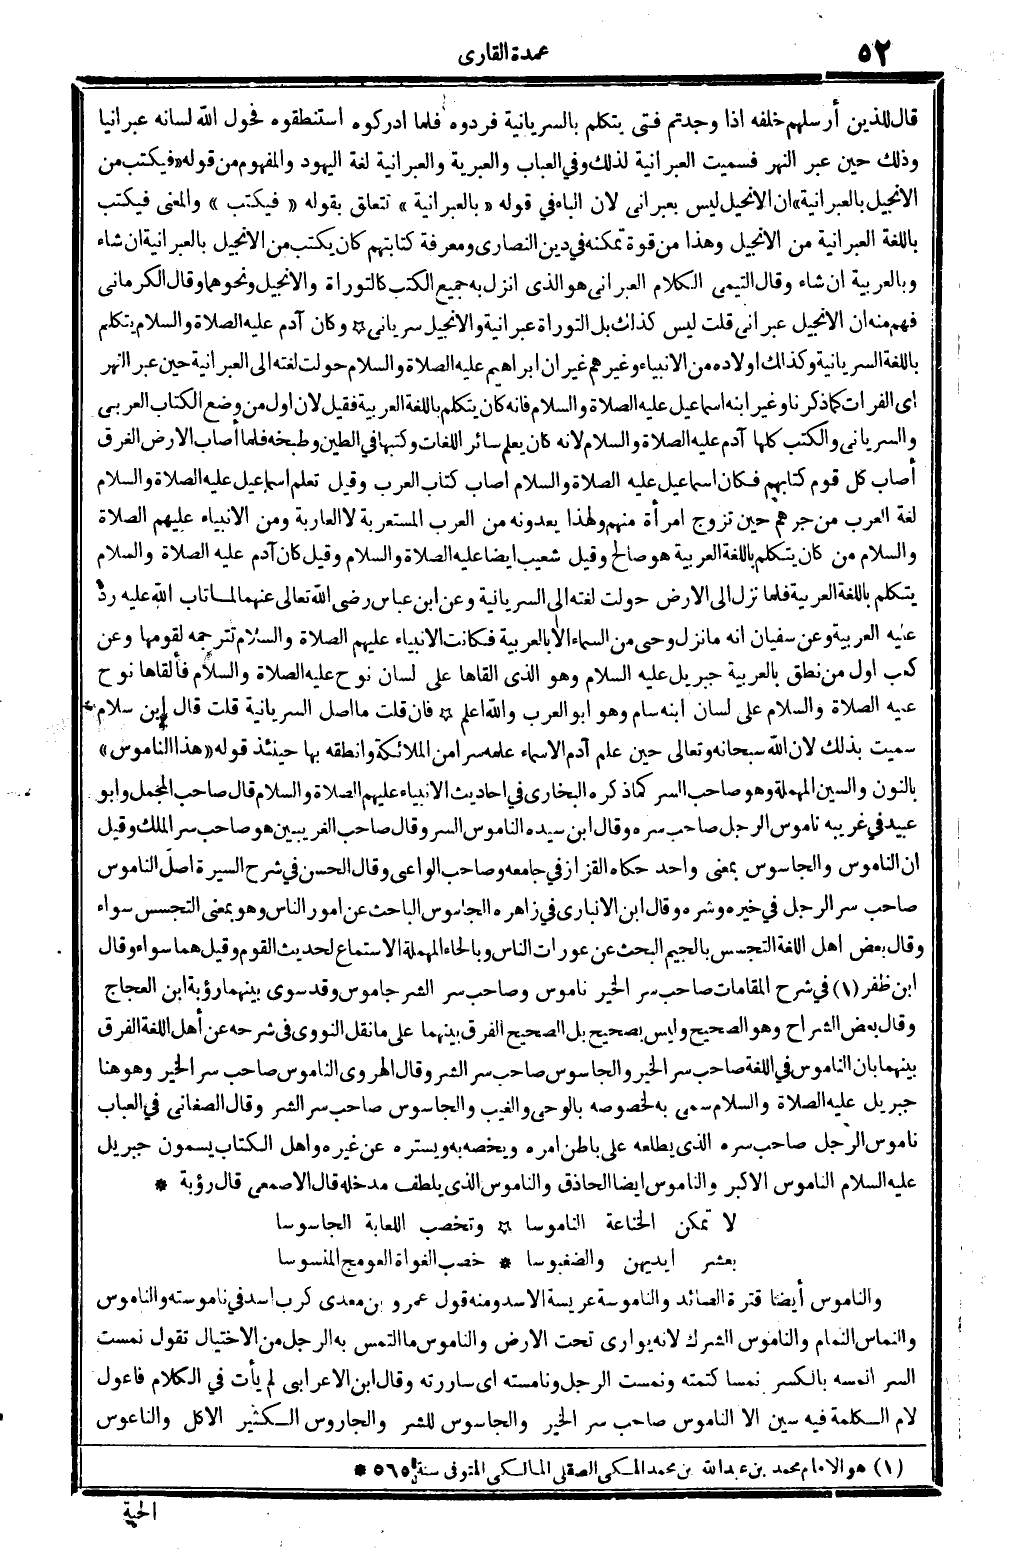 ٥٢
عمدة القارى
قال للذين أرسلهم خلفه اذا وجدتم فتى يتكلم بالسريانية فردوه فلما ادركوه استنطقوه فحول الله لسانه عبرانيا
وذلك حين عبر النهر فسميت العبرانية لذلك وفي العباب والعبرية والعبرانية لغة اليهود والمفهوم من قوله «فيكتب من
الانجيل بالعبرانية» ان الانجيل ليس بعبرانى لان الباء في قوله « بالعبرانية » تتعلق بقوله « فيكتب » والمعنى فيكتب
باللغة العبرانية من الانجيل وهذا من قوة تمكنه في دين النصارى ومعرفة كتابتهم كان يكتب من الانجيل بالعبرانية ان شاء
وبالعربية ان شاء وقال التيمى الكلام العبرانى هو الذى انزل به جميع الكتب كالتوراة والانجيل ونحوهما وقال الكرمانى
فهم منه ان الانجيل عبرانى قلت ليس كذلك بل التوراة عبرانية والانجيل سريانى ☆ وكان آدم عليه الصلاة والسلام يتكلم
باللغة السريانية وكذلك اولاده من الانبياء وغيرهم غير ان ابراهيم عليه الصلاة والسلام حولت لغته الى العبرانية حين عبر النهر
اى الفرات كما ذكرنا وغير ابنه اسماعيل عليه الصلاة والسلام فانه كان يتكلم باللغة العربية فقيل لان اول من وضع الكتاب العربى
والسريانى والكتب كلها آدم عليه الصلاة والسلام لانه كان يعلم سائر اللغات وكتبها في الطين وطبخه فلما أصاب الارض الغرق
أصاب كل قوم كتابهم فكان اسماعيل عليه الصلاة والسلام اصاب كتاب العرب وقيل تعلم اسماعيل عليه الصلاة والسلام
لغة العرب من جرهم حين تزوج امرأة منهم ولهذا يعدونه من العرب المستعربة لا العاربة ومن الانبياء عليهم الصلاة
والسلام من كان يتكلم باللغة العربية هو صالح وقيل شعيب ايضا عليه الصلاة والسلام وقيل كان آدم عليه الصلاة والسلام
يتكلم باللغة العربية فلما نزل الى الارض حولت لغته الى السريانية وعن ابن عباس رضى الله تعالى عنهما لما تاب الله عليه رد
عليه العربية وعن سفيان انه ما نزل وحى من السماء الا بالعربية فكانت الانبياء عليهم الصلاة والسلام تترجمه لقومها وعن
كعب اول من نطق بالعربية جبريل عليه السلام وهو الذى القاها على لسان نوح عليه الصلاة والسلام فألقاها نوح
عليه الصلاة والسلام على لسان ابنه سام وهو ابو العرب والله اعلم ☆ فان قلت ما اصل السريانية قلت قال ابن سلام
سميت بذلك لان الله سبحانه وتعالى حين علم آدم الاسماء علمه سرا من الملائكة وانطقه بها حينئذ قوله «هذا الناموس»
بالنون والسين المهملة وهو صاحب السر كما ذكره البخارى في احاديث الانبياء عليهم الصلاة والسلام قال صاحب المجمل وابو
عبيد في غريبه ناموس الرجل صاحب سره وقال ابن سيده الناموس السر وقال صاحب الغريبين هو صاحب سر الملك وقيل
ان الناموس والجاسوس بمعنى واحد حكاه القزاز في جامعه وصاحب الواعى وقال الحسن في شرح السيرة اصل الناموس
صاحب سر الرجل في خيره وشره وقال ابن الانبارى في زاهره الجاسوس الباحث عن امور الناس وهو بمعنى التجسس سواء
وقال بعض اهل اللغة التجسس بالجيم البحث عن عورات الناس وبالحاء المهملة الاستماع لحديث القوم وقيل هما سواء وقال
ابن ظفر (١) في شرح المقامات صاحب سر الخير ناموس وصاحب سر الشر جاموس وقد سوى بينهما رؤبة ابن العجاج
وقال بعض الشراح وهو الصحيح وليس بصحيح بل الصحيح الفرق بينهما على ما نقل النووى في شرحه عن أهل اللغة الفرق
بينهما بان الناموس في اللغة صاحب سر الخير والجاسوس صاحب سر الشر وقال الهروى الناموس صاحب سر الخير وهو هنا
جبريل عليه الصلاة والسلام سمى به لخصوصه بالوحى والغيب والجاسوس صاحب سر الشر وقال الصغانى في العباب
ناموس الرجل صاحب سره الذى يطلعه على باطن امره ويخصه به ويستره عن غيره واهل الكتاب يسمون جبريل
عليه السلام الناموس الاكبر والناموس ايضا الحاذق والناموس الذى يلطف مدخله قال الاصمعى قال رؤبة *
لا تمكن الخناعة الناموسا ☆ وتخصب اللعابة الجاسوسا
بعشر ايديهن والضغبوسا * خصب الغواة العومج المنسوسا
والناموس أيضا قترة الصائد والناموسة عريسة الاسد ومنه قول عمرو بن معدى كرب اسد في ناموسته والناموس
والنماس النمام والناموس الشرك لانه يوارى تحت الارض والناموس ما التمس به الرجل من الاختيال تقول نمست
السر انمسه بالكسر نمسا كتمته ونمست الرجل ونامسته اى ساررته وقال ابن الاعرابى لم يأت في الكلام فاعول
لام الكلمة فيه سين الا الناموس صاحب سر الخير والجاسوس للشر والجاروس الكثير الاكل والناعوس
(١) هو الامام محمد بن عبد الله بن محمد المكى الصقلى المالكى المتوفى سنة ٥٦٥ *
الحية